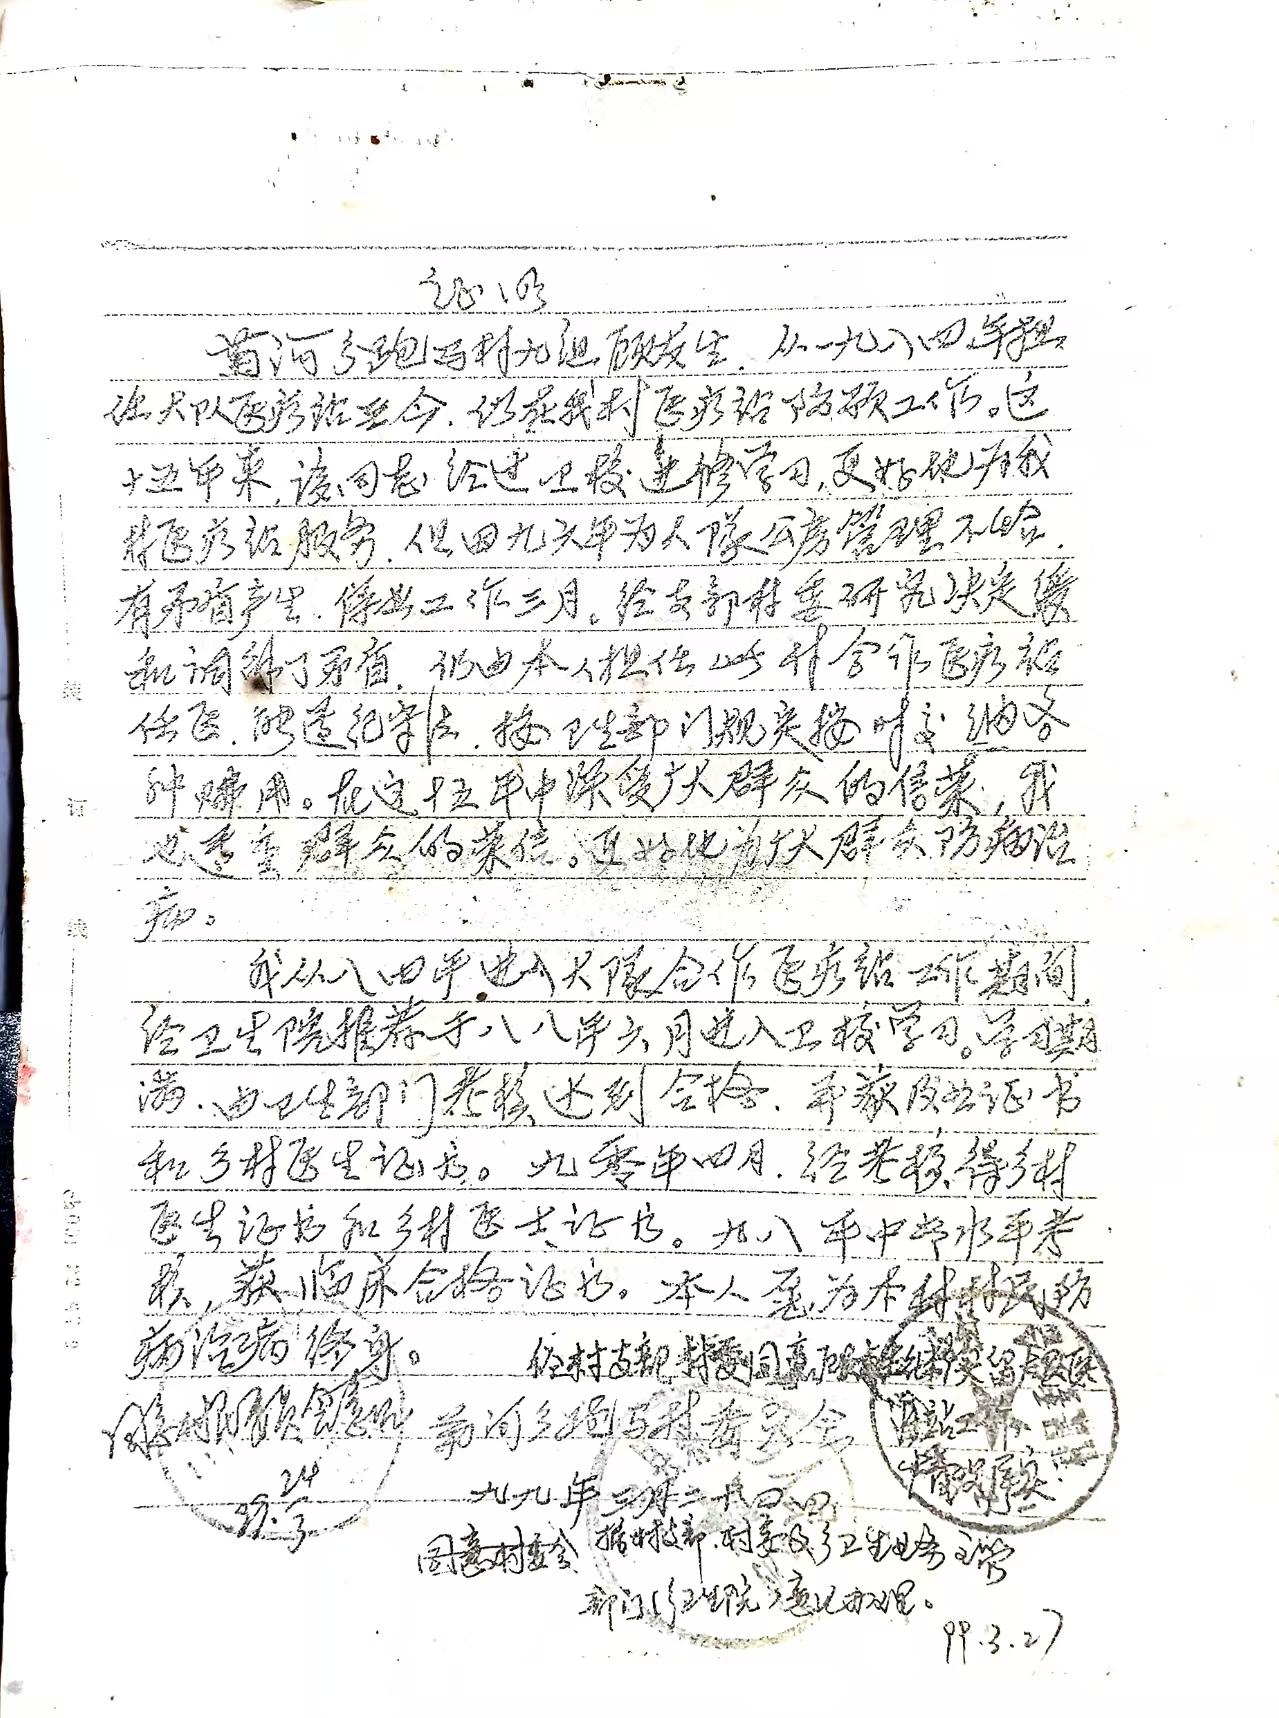 证明
河乡跑马村九组顾发生.从一九八四年担
任大队医疗站至今.仍在我村医疗站防预工作。这
十五年来,该同志经过卫校进修学习,更好地为我
村医疗站服务.但因九六年为大隊公房管理不恰.
有矛盾产生.停止工作三月。经支部村委研究决定缓
和调解了矛盾.仍由本人担任此村合作医疗站
任医.能遵纪守法.按卫生部门规定按时交纳各
种费用。在这十五年中深受广大群众的信莱,我
也尊重群众的莱信。更好地为广大群众防病治
病。
我从八四年进入大隊合作医疗站工作期间
经卫生院推荐于八八年六月进入卫校学习。学习期
满.由卫生部门考核达到合格.并获及业证书
和乡村医生证书。九零年四月.经考核得乡村
医生证书和乡村医士证书。九八年中专水平考
核,获临床合格证书。本人愿为本村村民防
病治病终身。
经村支部村委同意顾发生继续留
河乡跑马村委员会
站工作
情况属实
24
99.3
九九年三月二十四
同意村委会 据村支部.村委及乡卫生业务主管
部门(乡卫生院)意见办理。
99.3.27